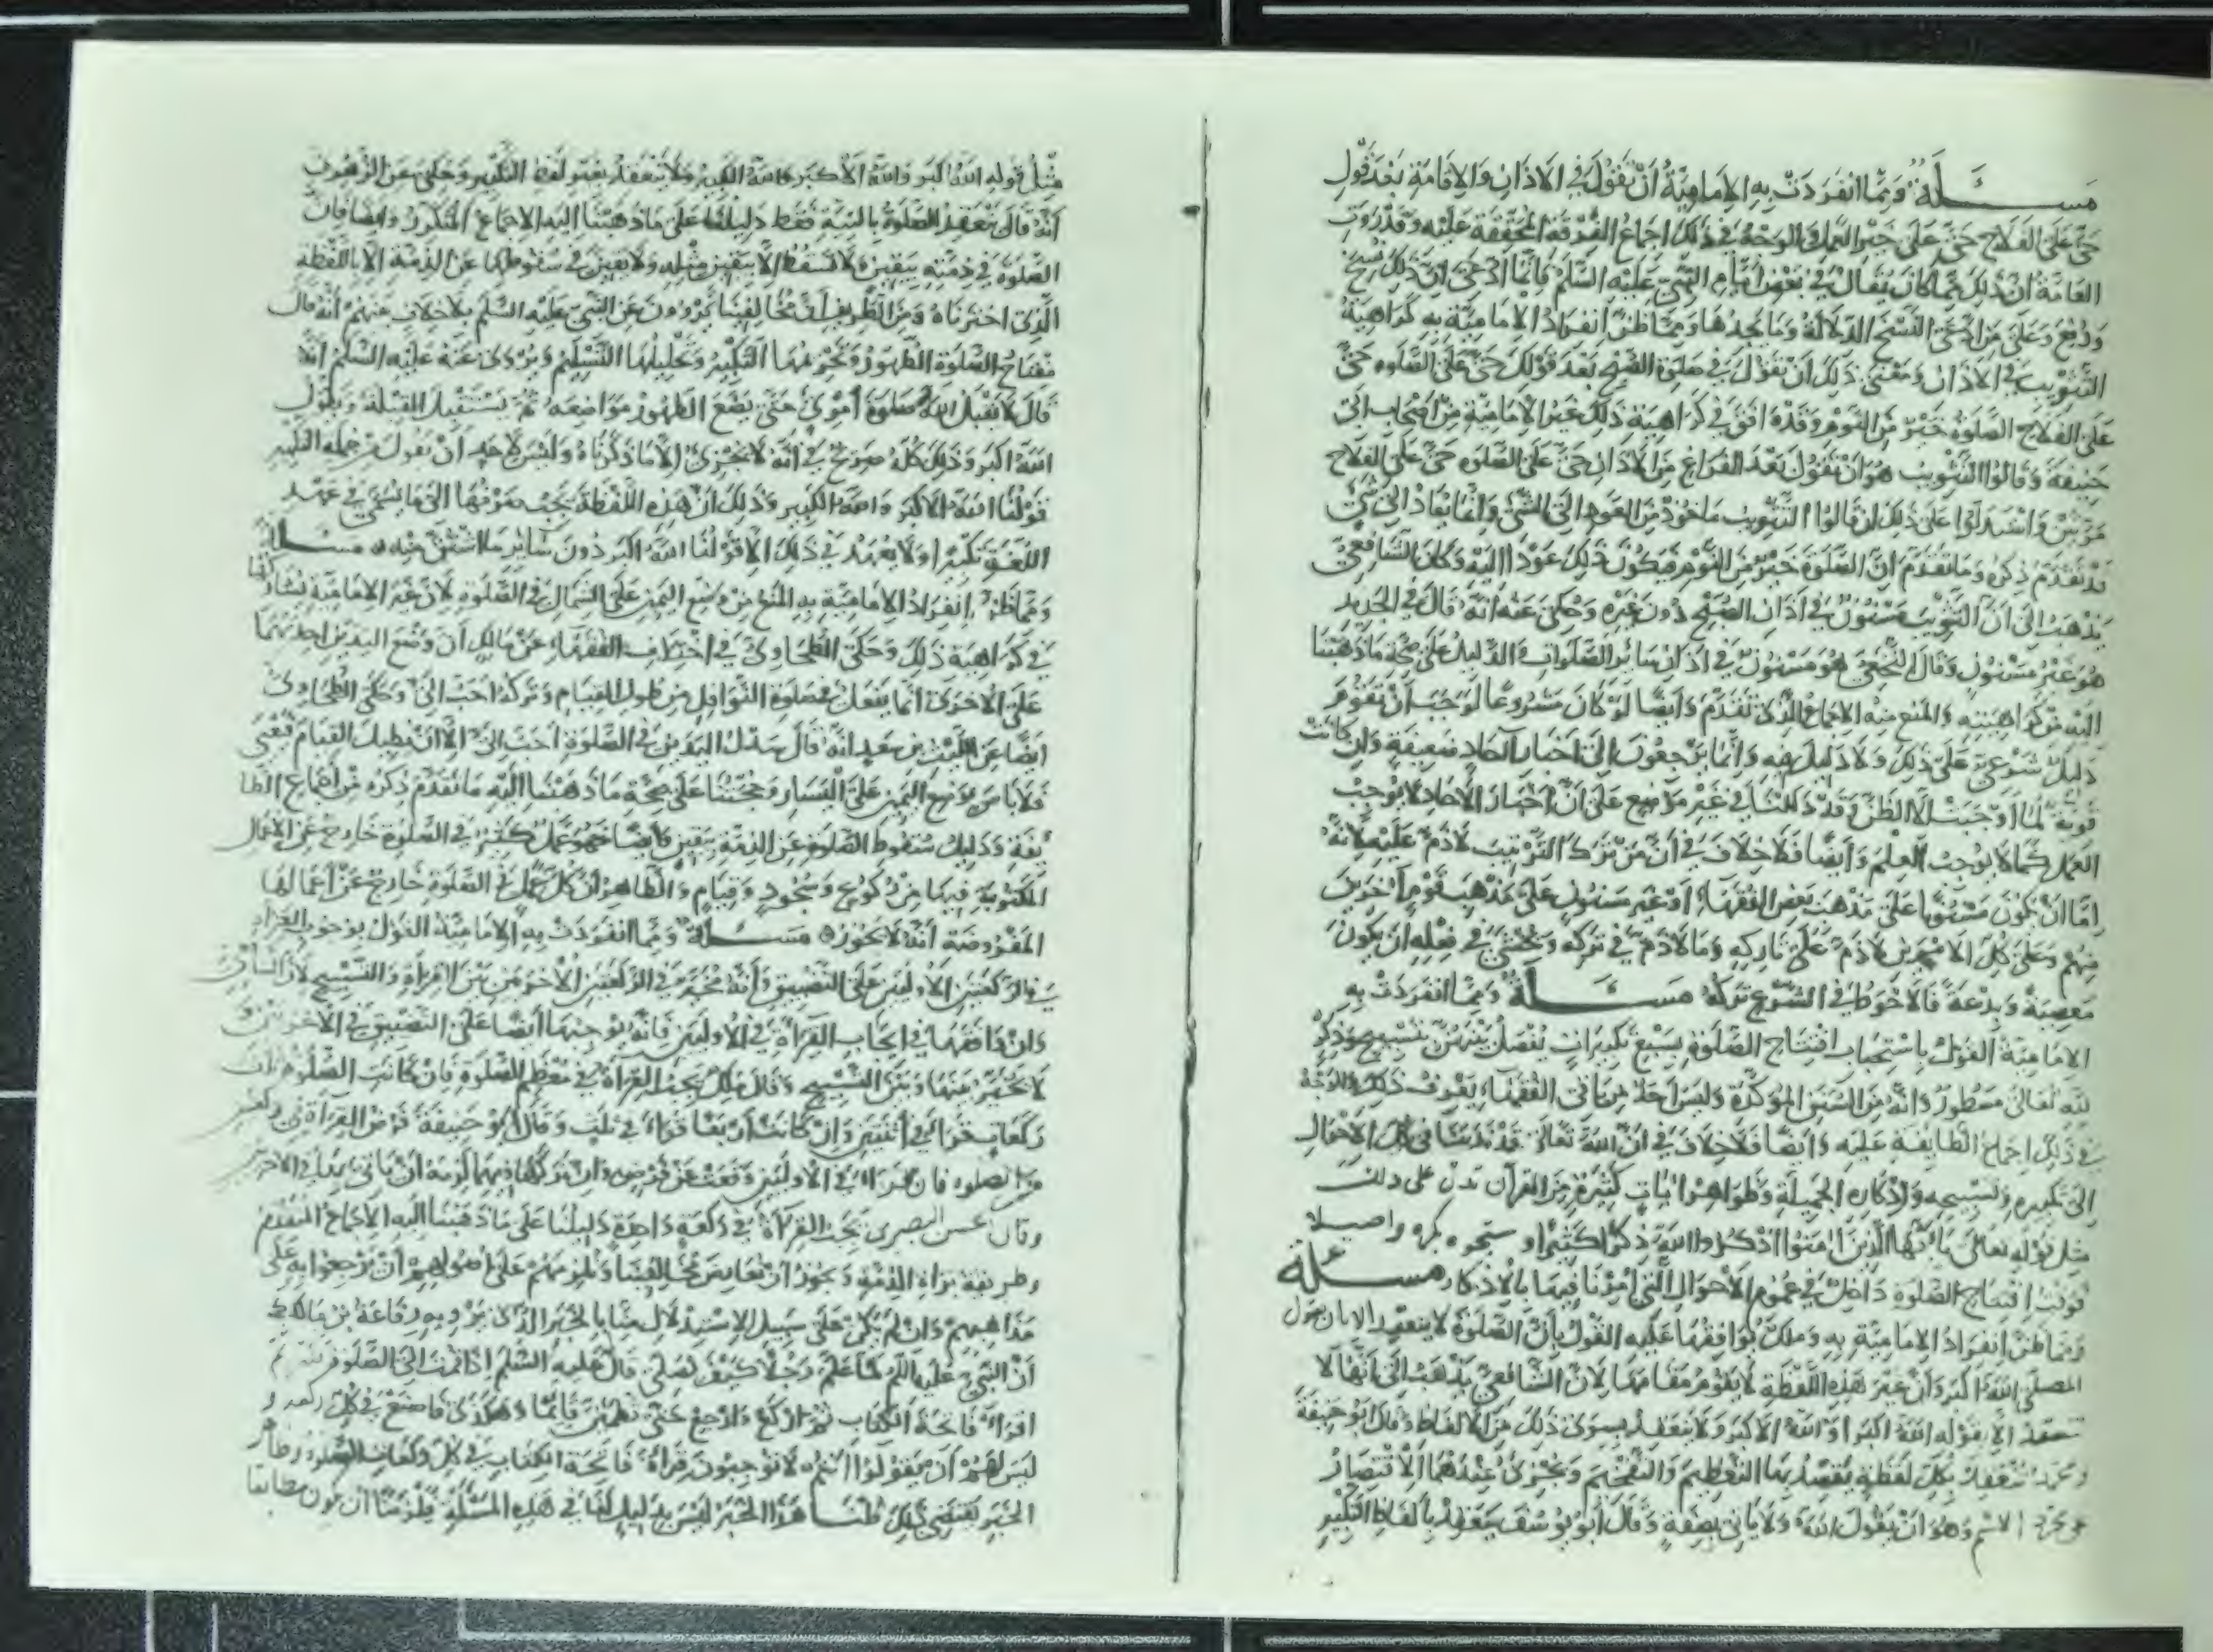 مسـئلة ومما انفردت به الامامية ان تقول في الاذان والاقامة بعد قول
حي على الفلاح حي على خير العمل والوجه في ذلك اجماع الفرقة المحقة عليه وقد روت
العامة ان ذلك مما كان يقال في بعض ايام النبي عليه السلم وانما ادعي ان ذلك نسخ
ورفع وعلى من ادعى النسخ الدلالة وما يجدها ومما ظن انفراد الامامية به كراهية
التثويب في الاذان ومعنى ذلك ان تقول في صلوة الصبح بعد قولك حي على الصلوه حي
على الفلاح الصلوة خير من النوم وقد وافق في كراهية ذلك غير الامامية من اصحاب ابي
حنيفة وقالوا التثويب هو ان تقول بعد الفراغ من الاذان حي على الصلوه حي على الفلاح
مرتين واستدلوا على ذلك ان قالوا التثويب ماخوذ من العود الى الشيء وانما يعاد الى شيء
قد تقدم ذكره وما تقدم ان الصلوة خير من النوم فيكون ذلك عودا اليه وكان الشافعي
يذهب الى ان التثويب مسنون في اذان الصبح دون غيره وحكي عنه انه قال في الجديد
هو غير مسنون وقال النخعي هو مسنون في اذان سائر الصلوات والدليل على صحة ما ذهبنا
اليه من كراهيته والمنع منه الاجماع الذي تقدم وايضا لو كان مشروعا لوجب ان يقوم
دليل شرعي على ذلك ولا دليل فيه وانما يرجعون الى اخبار آحاد ضعيفة وان كانت
قوية لما اوجبت الا الظن وقد دللنا في غير موضع على ان اخبار الآحاد لا توجب
العمل كما لا توجب العلم وايضا فلا خلاف في ان من ترك التثويب لا ذم عليه لانه
اما ان يكون مسنونا على مذهب بعض الفقهاء او غير مسنون على مذهب قوم آخرين
منهم وعلى كل الامرين لا ذم على تاركه وما لا ذم في تركه ويخشى في فعله ان يكون
معصية وبدعة فالاحوط في الشرع تركه مسـئلة ومما انفردت به
الامامية القول باستحباب افتتاح الصلوة بسبع تكبيرات يفصل بينهن بتسبيح وذكر
لله تعالى مسطور وانه من السنن المؤكدة وليس احد من باقي الفقهاء يعرف ذلك والوجه
في ذلك اجماع الطايفة عليه وايضا فلا خلاف في ان الله تعالى قد ندبنا في كل الاحوال
الى تكبيره وتسبيحه واذكاره الجميلة وظواهر آيات كثيرة من القرآن تدل على ذلك
مثل قوله تعالى يا ايها الذين امنوا اذكروا الله ذكرا كثيرا وسبحوه بكره واصيلا
فوقت افتتاح الصلوة داخل في عموم الاحوال التي امرنا فيها بالاذكار مسـئلة
ومما ظن انفراد الامامية به وملك يوافقها عليه القول بان الصلوة لا ينعقد الا بان يقول
المصلي الله اكبر وان غير هذه اللفظة لا يقوم مقامها لان الشافعي يذهب الى انها لا
تنعقد الا بقوله الله اكبر او الله الاكبر ولا ينعقد بسوى ذلك من الالفاظ وقال ابو حنيفة
ومحمد تنعقد بكل لفظة يقصد بها التعظيم والتفخيم ويجزي عندهما الاقتصار
على مجرد الاسم وهو ان يقول الله ولا ياتي بصفة وقال ابو يوسف ينعقد بالفاظ التكبير
مثل قوله الله اكبر والله الاكبر والله الكبير ولا ينعقد بغير لفظ التكبير وحكي عن الزهري
انه قال تنعقد الصلوة بالنية فقط دليلنا على ما ذهبنا اليه الاجماع المتكرر وايضا فان
الصلوة في ذمته بيقين ولا تسقط الا بيقين مثله ولا يقين في سقوطها عن الذمة الا باللفظة
الذي اخترناه ومن الطريف ان مخالفينا يروون عن النبي عليه السلم بلا خلاف منهم انه قال
مفتاح الصلوة الطهور وتحريمها التكبير وتحليلها التسليم ويروى عنه عليه السلم انه
قال لا يقبل الله صلوة امرئ حتى يضع الطهور مواضعه ثم يستقبل القبلة ويقول
الله اكبر وذلك كله صريح في انه لا يجزي الا ما ذكرناه وليس لاحد ان يقول من جملة التكبير
قولنا الله الاكبر والله الكبير وذلك ان هذه اللفظة يجب صرفها الى ما يسمى في عهد
اللغة تكبيرا ولا يعهد في ذلك الا قولنا الله اكبر دون سائر ما اشتق منه مسـئلة
ومما ظن انفراد الامامية به المنع من وضع اليمين على الشمال في الصلوة لان غير الامامية تشاركها
في كراهية ذلك وحكى الطحاوي في اختلاف الفقهاء عن مالك ان وضع اليدين احديهما
على الاخرى انما يفعل في صلوة النوافل من طول القيام وتركه احب الي وحكى الطحاوي
ايضا عن الليث بن سعد انه قال سدل اليدين في الصلوة احب الي الا ان يطيل القيام فيعيى
فلا باس بوضع اليمين على اليسار وحجتنا على صحة ما ذهبنا اليه ما تقدم ذكره من اجماع الطا
يفة ودليل سقوط الصلوة عن الذمة بيقين وايضا فهو عمل كثير في الصلوة خارج عن الاعمال
المكتوبة فيها من ركوع وسجود وقيام والظاهر ان كل عمل في الصلوة خارج عن اعمالها
المفروضة انه لا يجوز مسـئلة ومما انفردت به الامامية القول بوجوب القراءة
في الركعتين الاوليين على التضييق وانه مخير في الركعتين الاخريين بين القراة والتسبيح لان الشافعي
وان وافقها في ايجاب القراة في الاوليين فانه يوجبها ايضا على التضييق في الاخريين و
لا تخير بينها وبين التسبيح وقال ملك يجب القراة في معظم الصلوة فان كانت الصلوة ثلث
ركعات قرا في اثنتين وان كانت اربعا قراء في ثلث وقال ابو حنيفة فرض القراة في ركعتين
من الصلوه فان قرا في الاوليين وقعت عن فرضه وان تركها فيهما لزمه ان ياتي بها في الاخريين
وقال حسن البصري يجب القراة في ركعة واحدة دليلنا على ما ذهبنا اليه الاجماع المتقدم
وطريقة براءة الذمة ويجوز ان نعارض مخالفينا ونلزمهم على اصولهم ان يرجعوا به على
مذاهبهم وان لم يكن على سبيل الاستدلال منا بالخبر الذي يرويه رفاعة بن مالك
ان النبي عليه السلم لما علم رجلا كيف يصلي قال عليه السلم اذا قمت الى الصلوة فكبر ثم
اقرا فاتحة الكتاب ثم اركع وارجع حتى تطمئن قائما وهكذى فاصنع في كل ركعة و
ليس لهم ان يقولوا انتم لا توجبون قراة فاتحة الكتاب في كل ركعات الصلوة وظاهر
الخبر يقتضي ذلك قلنا هذا الخبر ليس بدليل لنا في هذه المسئلة فيلزمنا ان يكون مطابقا